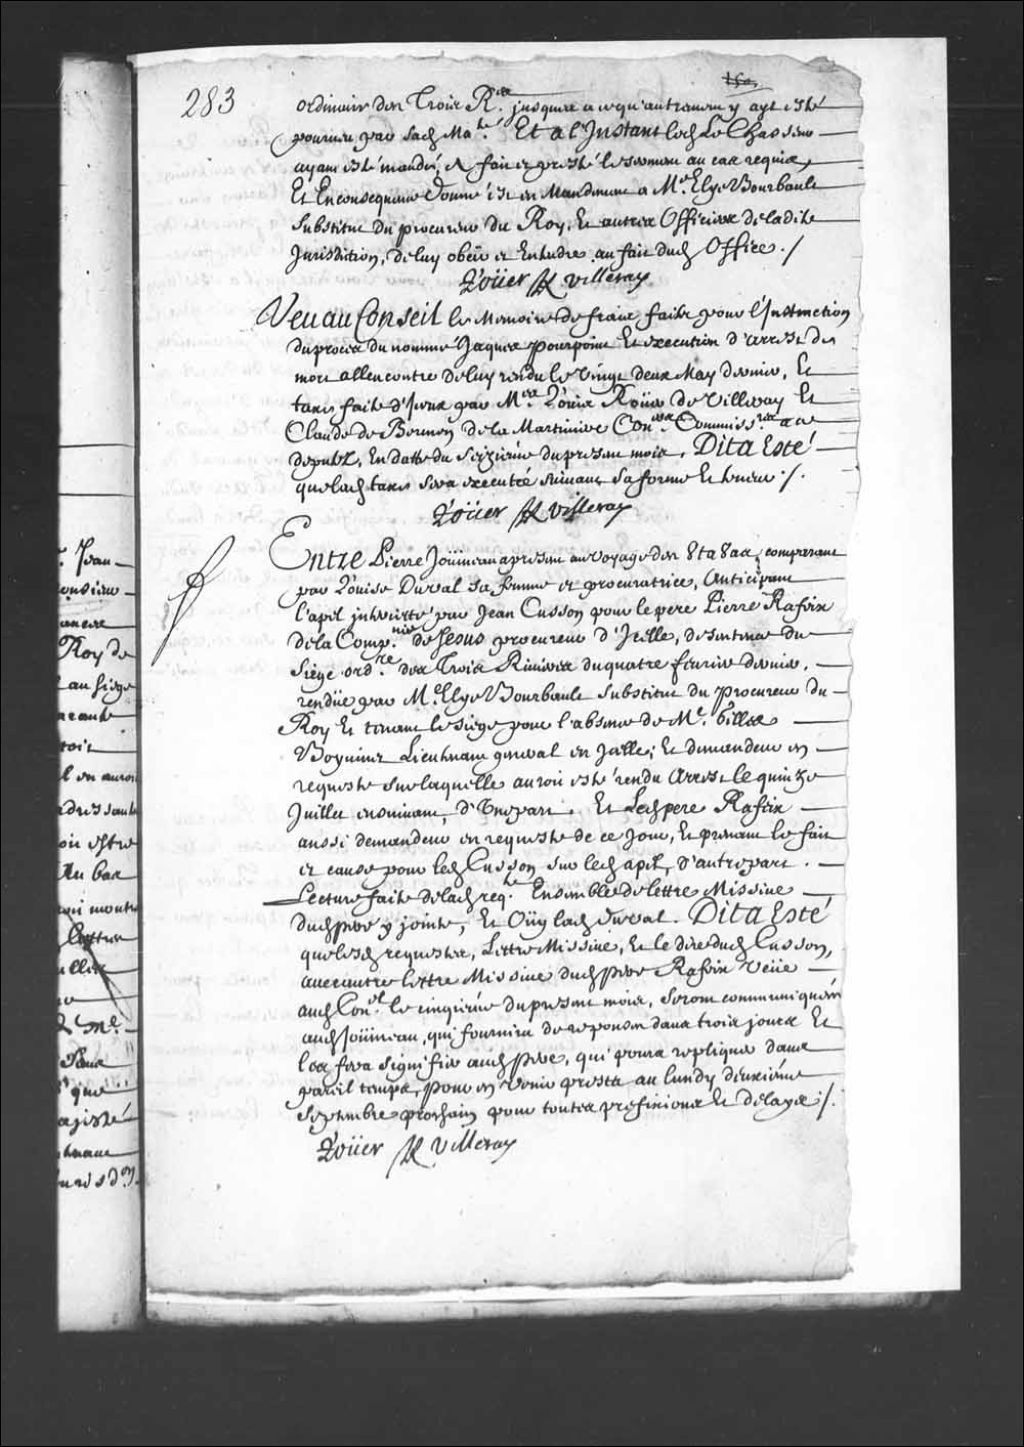 283
ordinaire des Trois R.res jusques a ce qu'autrement y ayt esté
pourveu par sad Ma.té Et a l'Instant led Le Chasseur
ayant esté mandé, A fait et presté le serment au cas requis,
Et Enconsequence donné est en Mandement a M.e Elye Bourbault
substitut du procureur du Roy, Et autres Officiers de ladite
Jurisdition, de luy obeir et Entendre au fait dud Office ./
Roüer de villeray
Veu au Conseil le Memoire de fraiz faits pour l'Instruction
du procés du nommé Jaques pourpoint Et execution d'arrest de
mort allencontre de luy rendu le vingt deux May dernier, Et
taxe faite d'Iceux par M.es Loüis Roüer de Villeray Et
Claude de Bermen de la Martiniere Con.ers Commiss.res a ce
deputez, En datte du seizieme du present mois, Dit a Esté
que lad taxe sera executée suivant sa forme Et teneur ./.
Roüer de villeray
Entre Pierre Joüineau apresent au voyage des 8ta8as, comparant
par Loüise Duval sa femme et procuratrice, Anticipant
l'apel interjetté par Jean Cusson pour le pere Pierre Rafeix
de la Comp.nie de Jesus procureur d'Icelle, de sentence du
Siege ord.re des Trois Rivieres du quatre fevrier dernier,
rendüe par M.e Elye Bourbault substitut du procureur du
Roy Et tenant le siege pour l'absence de M.e Gilles
Boyvinet Lieutenant general en Icelle; Et demandeur en
requeste sur laquelle auroit esté rendu Arrest le quinze
Juillet ensuivant, d'Une part. Et Led pere Rafeix
aussi demandeur en requeste de ce Jour, Et prenant le fait
et cause pour led Cusson sur led apel, d'autre part.
Lecture faite de lad req.te Ensemble de lettre Missive
dud pere y jointe, Et Oüy lad Duval. Dit a Esté
que lesd requestes, Lettre Missive, Et le dire dud Cusson,
avec autre lettre Missive dud pere Rafeix veüe
aud Con.el le cinquieme du present mois, seront communiquées
aud Joüineau, qui fournira de reponses dans trois jours Et
les fera signifier aud pere, qui poura repliquer dans
pareil temps, pour en venir prests au lundy deuxieme
Septembre prochain pour toutes prefixions Et delays ./.
Roüer de villeray